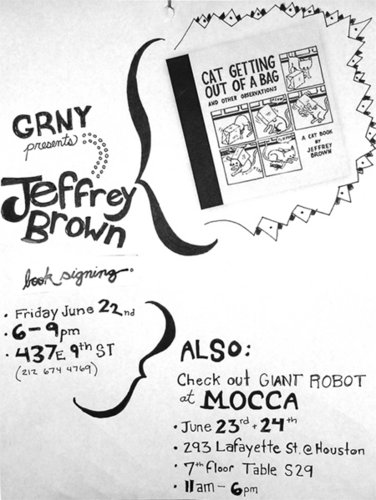 GRNY
presents
Jeffrey
Brown
CAT GETTING
OUT OF A BAG
AND OTHER OBSERVATIONS
A CAT BOOK
BY
JEFFREY
BROWN
book signing
• Friday June 22nd
• 6-9pm
• 437E 9th ST
(212 674 4769)
ALSO:
Check out GIANT ROBOT
at MOCCA
• June 23rd + 24th
• 293 Lafayette St. @ Houston
• 7th floor Table S29
• 11am - 6pm